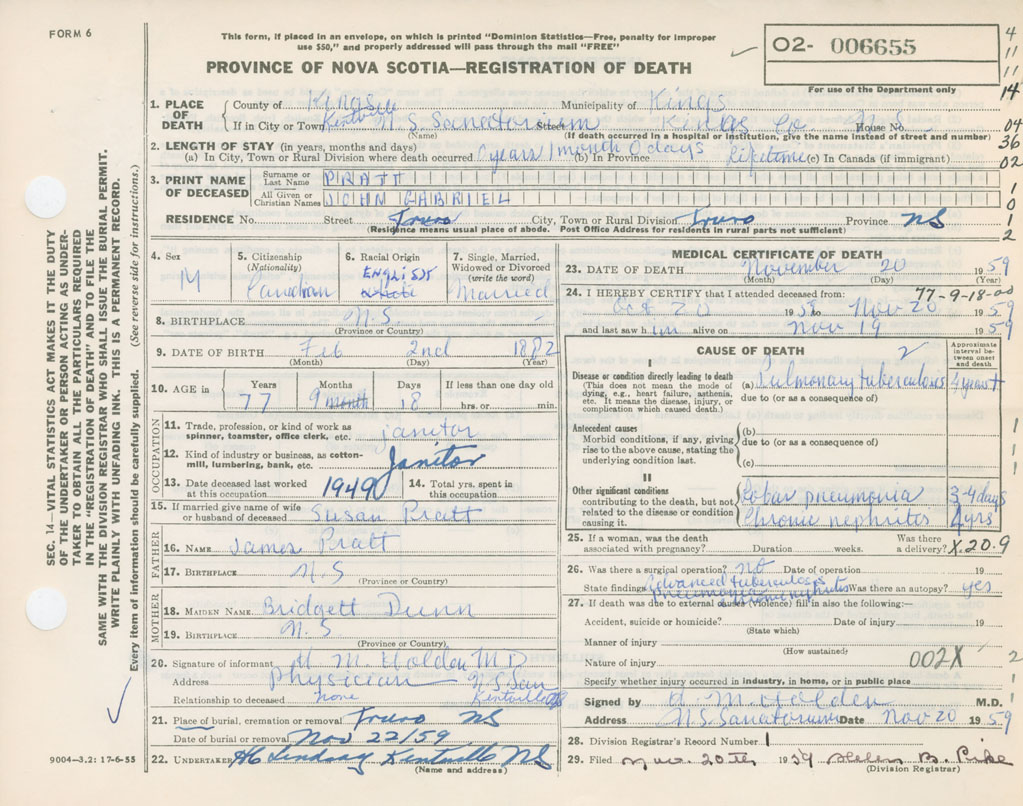 FORM 6
This form, if placed in an envelope, on which is printed "Dominion Statistics—Free, penalty for improper
use $50," and properly addressed will pass through the mail "FREE"
PROVINCE OF NOVA SCOTIA—REGISTRATION OF DEATH
02- 006655
For use of the Department only
4
11
11
14
04
36
02
1
0
1
2
1. PLACE OF DEATH
County of Kings Municipality of Kings
If in City or Town Kentville N.S. Sanatorium Street Kings Co. N.S. House No.
(Name) (If death occurred in a hospital or institution, give the name instead of street and number)
2. LENGTH OF STAY (in years, months and days)
(a) In City, Town or Rural Division where death occurred 0 years 1 month 0 days (b) In Province lifetime (c) In Canada (if immigrant)
3. PRINT NAME OF DECEASED
Surname or Last Name PRATT
All Given or Christian Names JOHN GABRIEL
RESIDENCE No. Street Truro City, Town or Rural Division Truro Province NS
(Residence means usual place of abode. Post Office Address for residents in rural parts not sufficient)
4. Sex M
5. Citizenship (Nationality) Canadian
6. Racial Origin ENGLISH White
7. Single, Married, Widowed or Divorced (write the word) Married
8. BIRTHPLACE N.S.
(Province or Country)
9. DATE OF BIRTH Feb 2nd 1882
(Month) (Day) (Year)
10. AGE in Years Months Days If less than one day old
77 9 month 18 hrs. or min.
OCCUPATION
11. Trade, profession, or kind of work as
spinner, teamster, office clerk, etc. janitor
12. Kind of industry or business, as cotton-
mill, lumbering, bank, etc. Janitor
13. Date deceased last worked at this occupation 1949
14. Total yrs. spent in this occupation
15. If married give name of wife
or husband of deceased Susan Pratt
FATHER
16. NAME James Pratt
17. BIRTHPLACE N.S
(Province or Country)
MOTHER
18. MAIDEN NAME Bridgett Dunn
19. BIRTHPLACE N.S
(Province or Country)
20. Signature of informant H. M. Holden M.D
Address Physician N.S. San
Relationship to deceased None Kentville NS
21. Place of burial, cremation or removal Truro NS
Date of burial or removal Nov 22/59
22. UNDERTAKER HC Lindsay Kentville NS
(Name and address)
9004—3.2: 17-6-55
MEDICAL CERTIFICATE OF DEATH
23. DATE OF DEATH November 20 1959
(Month) (Day) (Year)
24. I HEREBY CERTIFY that I attended deceased from: 77-9-18-00
Oct 20 1959 to Nov 20 1959
and last saw him alive on Nov 19 1959
CAUSE OF DEATH 2
Approximate interval between onset and death
I
Disease or condition directly leading to death
(This does not mean the mode of
dying, e.g., heart failure, asthenia,
etc. It means the disease, injury, or
complication which caused death.)
(a) Pulmonary tuberculosis 4 years +
due to (or as a consequence of)
Antecedent causes
Morbid conditions, if any, giving
rise to the above cause, stating the
underlying condition last.
(b)
due to (or as a consequence of)
(c)
1
1
1
II
Other significant conditions
contributing to the death, but not
related to the disease or condition
causing it.
Lobar pneumonia 3-4 days
Chronic nephritis 4 yrs
25. If a woman, was the death
associated with pregnancy? Duration weeks. Was there a delivery? X.20.9
26. Was there a surgical operation? No Date of operation 19
State findings Advanced tuberculosis Was there an autopsy? yes
pneumonia
27. If death was due to external causes (violence) fill in also the following:—
Accident, suicide or homicide? Date of injury 19
(State which)
Manner of injury
(How sustained)
Nature of injury 002X 2
Specify whether injury occurred in industry, in home, or in public place 1
Signed by H. M. Holden M.D. 1
Address N.S. Sanatorium Date Nov 20 1959
28. Division Registrar's Record Number 1
29. Filed Nov. 20th 1959 Helen B. Pike
(Division Registrar)
SEC. 14—VITAL STATISTICS ACT MAKES IT THE DUTY
OF THE UNDERTAKER OR PERSON ACTING AS UNDER-
TAKER TO OBTAIN ALL THE PARTICULARS REQUIRED
IN THE "REGISTRATION OF DEATH" AND TO FILE THE
SAME WITH THE DIVISION REGISTRAR WHO SHALL ISSUE THE BURIAL PERMIT.
WRITE PLAINLY WITH UNFADING INK. THIS IS A PERMANENT RECORD.
Every item of information should be carefully supplied. (See reverse side for instructions.)